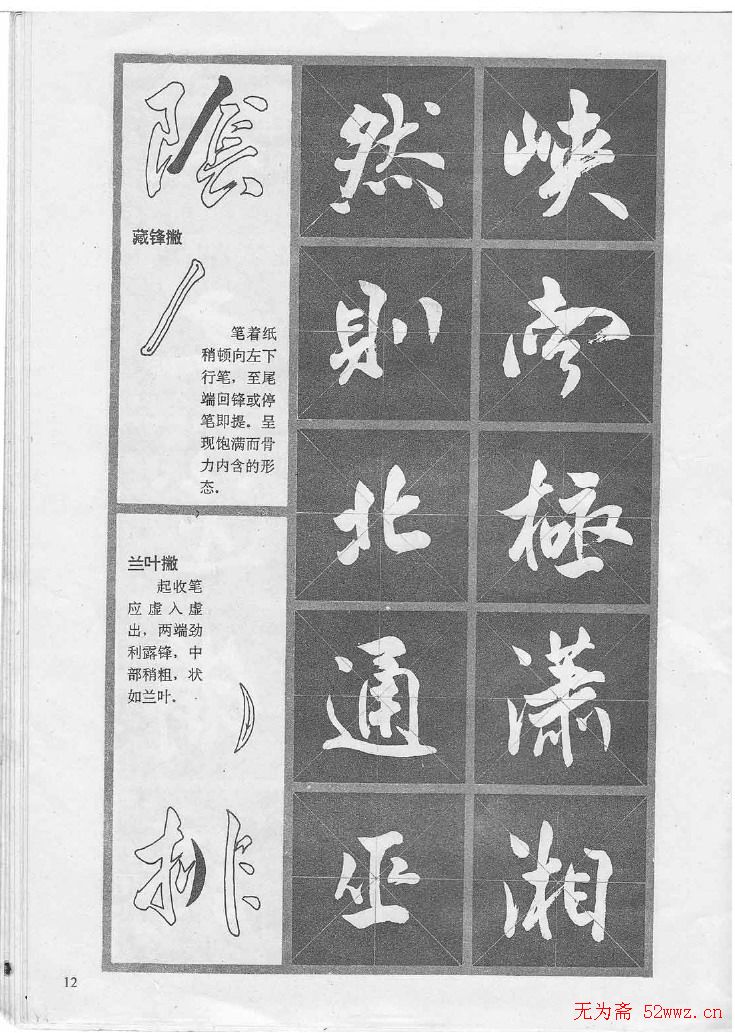 陰
藏锋撇
笔着纸
稍顿向左下
行笔，至尾
端回锋或停
笔即提。呈
现饱满而骨
力内含的形
态。
兰叶撇
起收笔
应虚入虚
出，两端劲
利露锋，中
部稍粗，状
如兰叶。
排
然
則
北
通
巫
峽
南
極
瀟
湘
12
无为斋 52wwz.cn